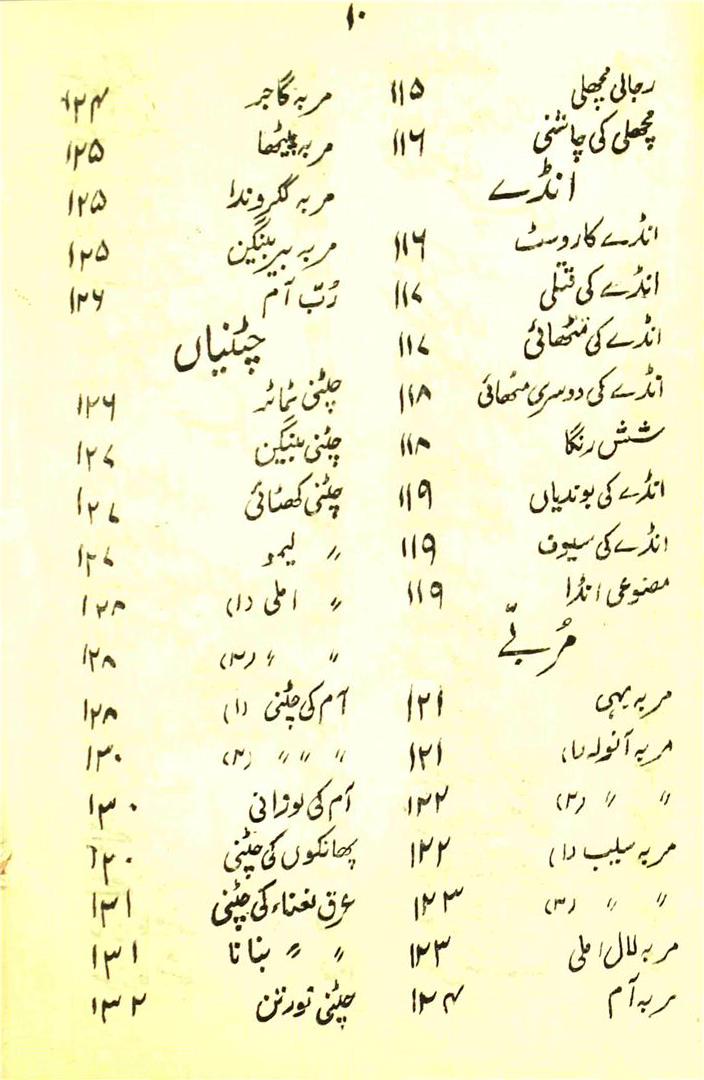 ۱۰
رجالی مچھلی ۱۱۵
مچھلی کی چاشنی ۱۱۶
انڈے
انڈے کا روسٹ ۱۱۶
انڈے کی قتلی ۱۱۷
انڈے کی مٹھائی ۱۱۷
انڈے کی دوسری مٹھائی ۱۱۸
شش رنگا ۱۱۸
انڈے کی بوندیاں ۱۱۹
انڈے کی سیوف ۱۱۹
مصنوعی انڈا ۱۱۹
مُربّے
مربہ بہی ۱۲۱
مربہ آنولہ (۱) ۱۲۱
〃 〃 (۲) ۱۲۲
مربہ سلیب (۱) ۱۲۲
〃 〃 (۲) ۱۲۳
مربہ لال املی ۱۲۳
مربہ آم ۱۲۴
مربہ گاجر ۱۲۴
مربہ پیٹھا ۱۲۵
مربہ ککروندا ۱۲۵
مربہ بیربینگن ۱۲۵
رُبّ آم ۱۲۶
چٹنیاں
چٹنی ٹماٹر ۱۲۶
چٹنی بینگن ۱۲۷
چٹنی کھٹائی ۱۲۷
〃 لیمو ۱۲۷
〃 املی (۱) ۱۲۸
〃 〃 (۲) ۱۲۸
آم کی چٹنی (۱) ۱۲۸
〃 〃 〃 (۲) ۱۳۰
آم کی نورانی ۱۳۰
پھانکوں کی چٹنی ۱۳۰
عرق نعناء کی چٹنی ۱۳۱
〃 〃 بنانا ۱۳۱
چٹنی نورتن ۱۳۲